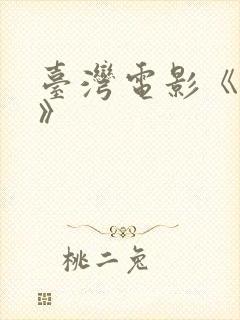 臺灣電影《
》
桃二兔